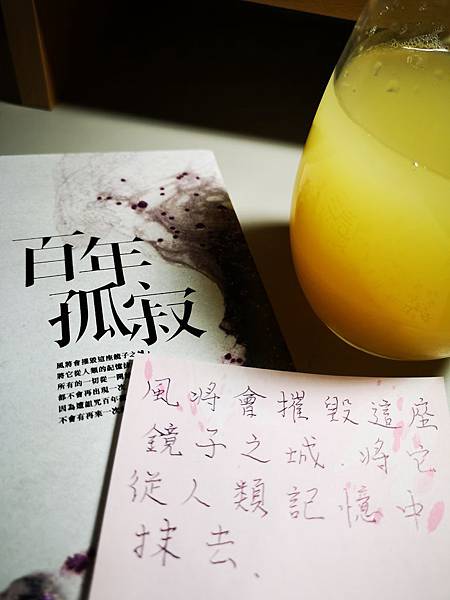 百年
孤寂
風將會摧毀這座鏡子之城
將它從人類的記憶
所有的一切從一
都不會再出現一次
因為遭詛咒百年
不會有再來一次
風將會摧毀這座
鏡子之城.將它
從人類記憶中
抹去、